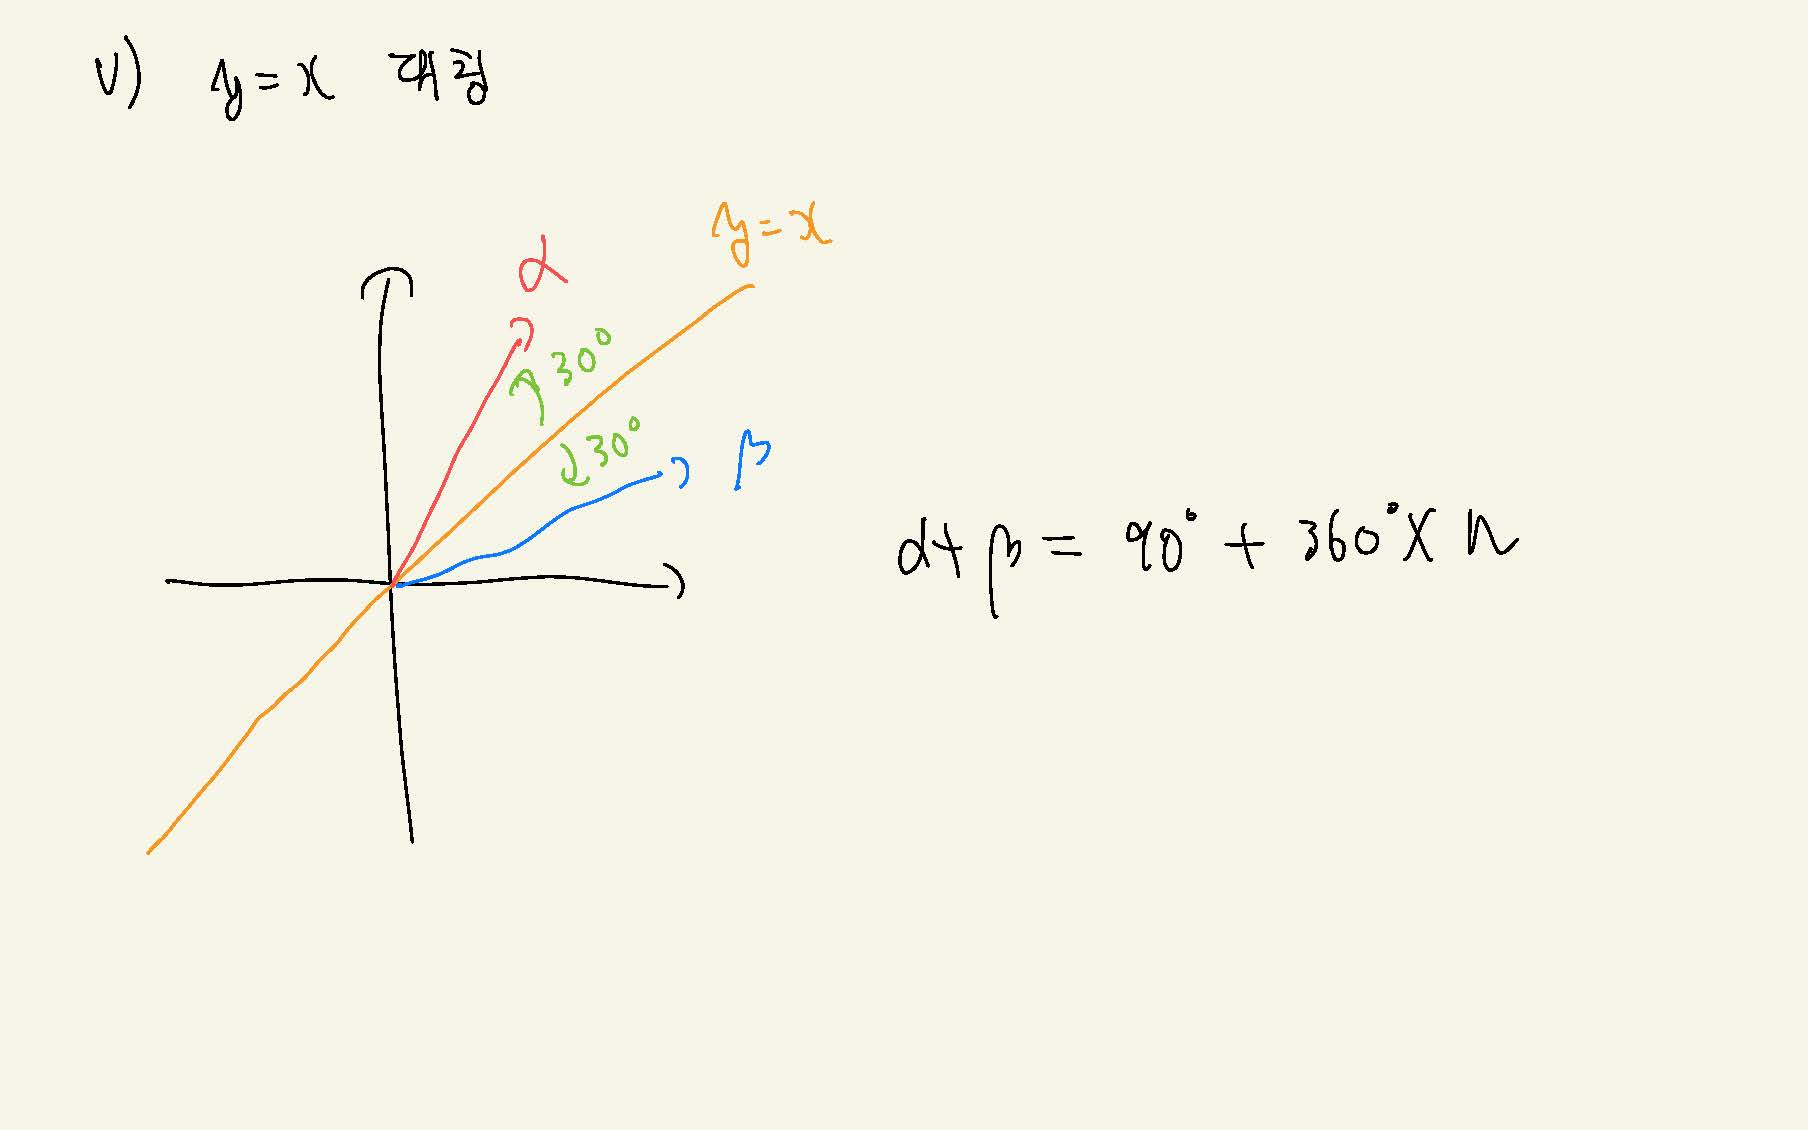 v) y=x 대칭
y=x
α
30°
30°
β
α+β = 90° + 360° × n